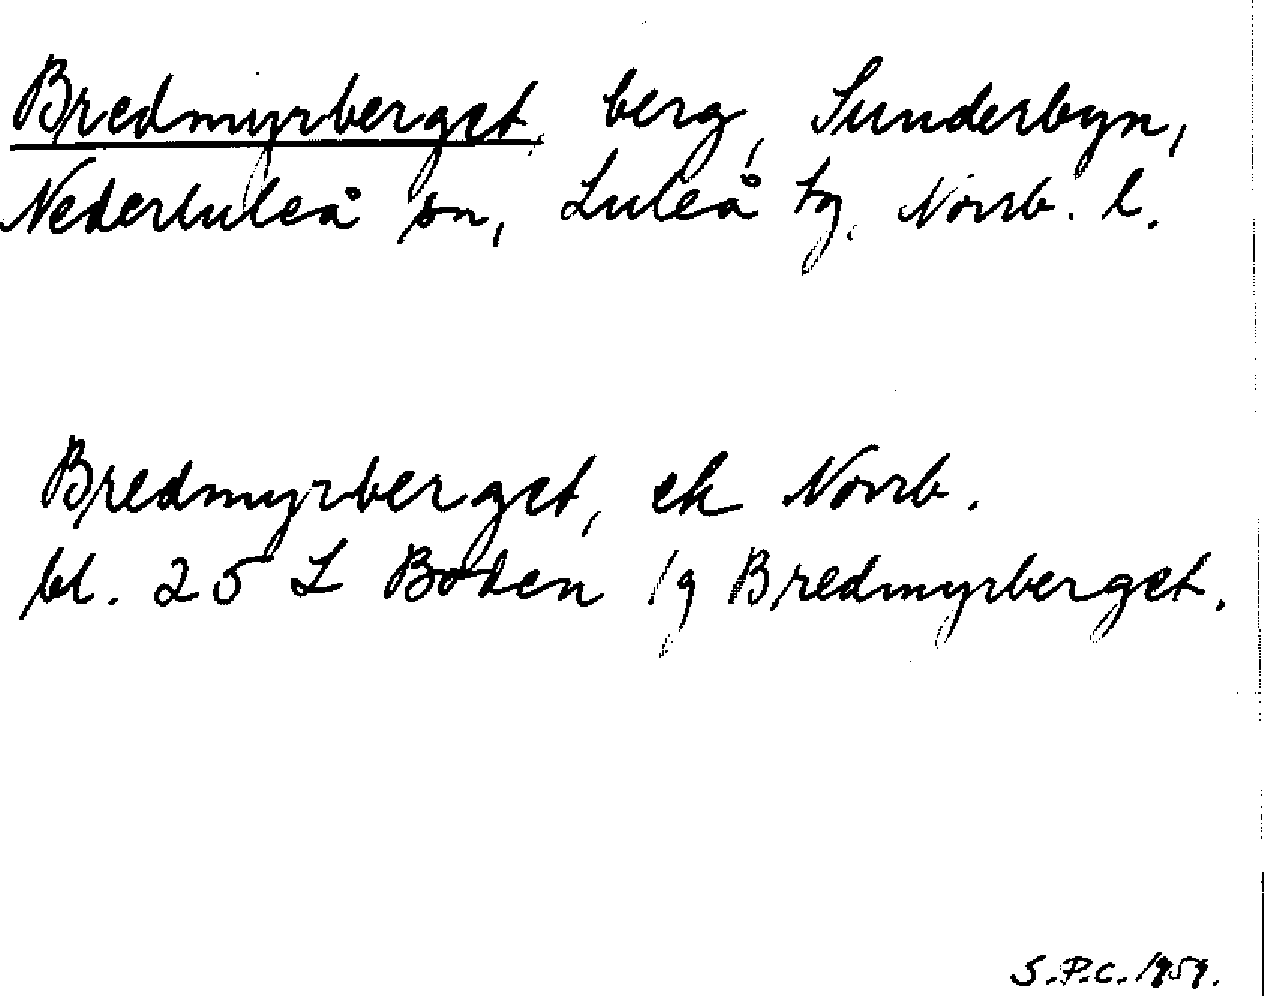 Bredmyrberget, berg, Sunderbyn,
Nederluleå sn, Luleå tg. Norrb. l.
Bredmyrberget, ek Norrb.
bl. 25 L Boden /g Bredmyrberget.
S.P.C. 1959.